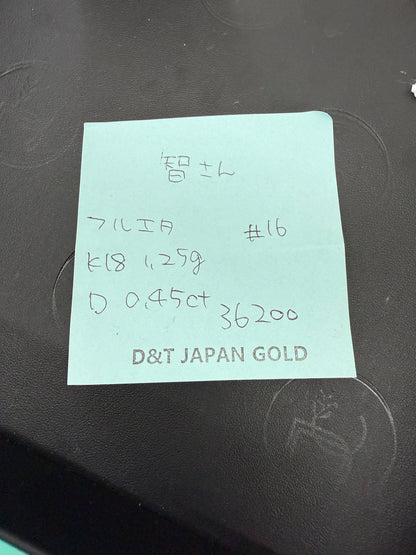 智さん
フルエタ #16
K18 1.25g
D 0.45ct 36200
D&T JAPAN GOLD